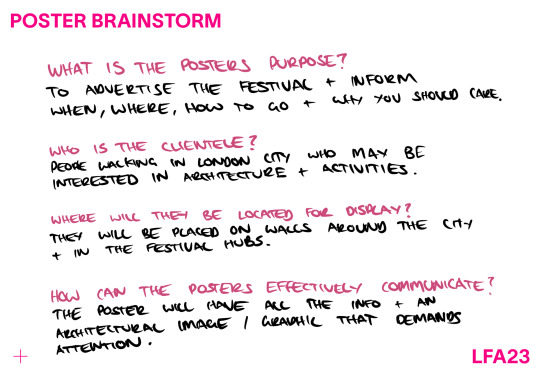 POSTER BRAINSTORM
WHAT IS THE POSTERS PURPOSE?
TO ADVERTISE THE FESTIVAL + INFORM
WHEN, WHERE, HOW TO GO + WHY YOU SHOULD CARE.
WHO IS THE CLIENTELE?
PEOPLE WALKING IN LONDON CITY WHO MAY BE
INTERESTED IN ARCHITECTURE + ACTIVITIES.
WHERE WILL THEY BE LOCATED FOR DISPLAY?
THEY WILL BE PLACED ON WALLS AROUND THE CITY
+ IN THE FESTIVAL HUBS.
HOW CAN THE POSTERS EFFECTIVELY COMMUNICATE?
THE POSTER WILL HAVE ALL THE INFO + AN
ARCHITECTURAL IMAGE / GRAPHIC THAT DEMANDS
ATTENTION.
LFA23